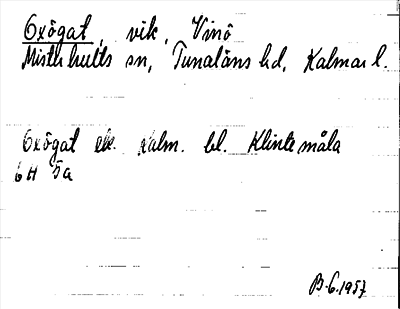 Oxögat, vik, Vinö
Misterhults sn, Tunaläns hd, Kalmar l.
Oxögat ek. Kalm. bl. Klintemåla
6 H 5a
B.G. 1957